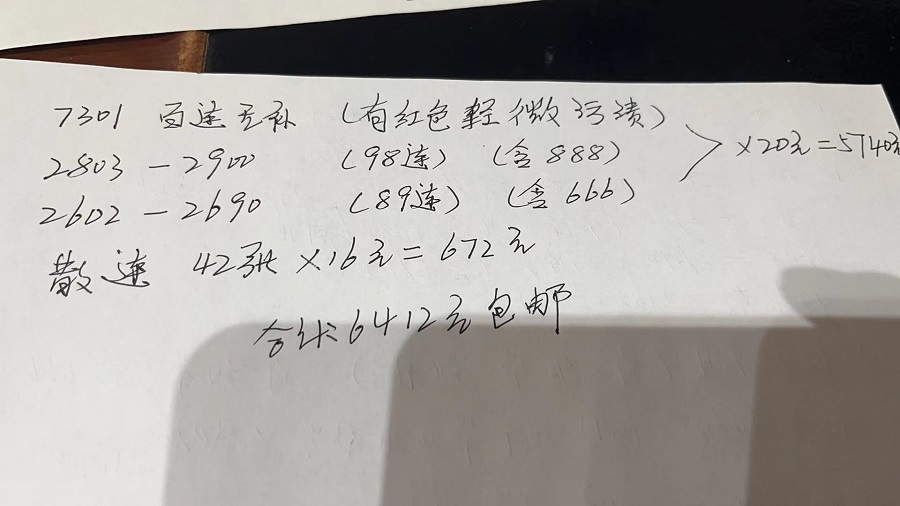 7301 百连无补 (有红色轻微污渍)
2803 - 2900 (98连) (含888)
×20元=5740元
2602 - 2690 (89连) (含666)
散连 42张×16元=672元
合计6412元包邮